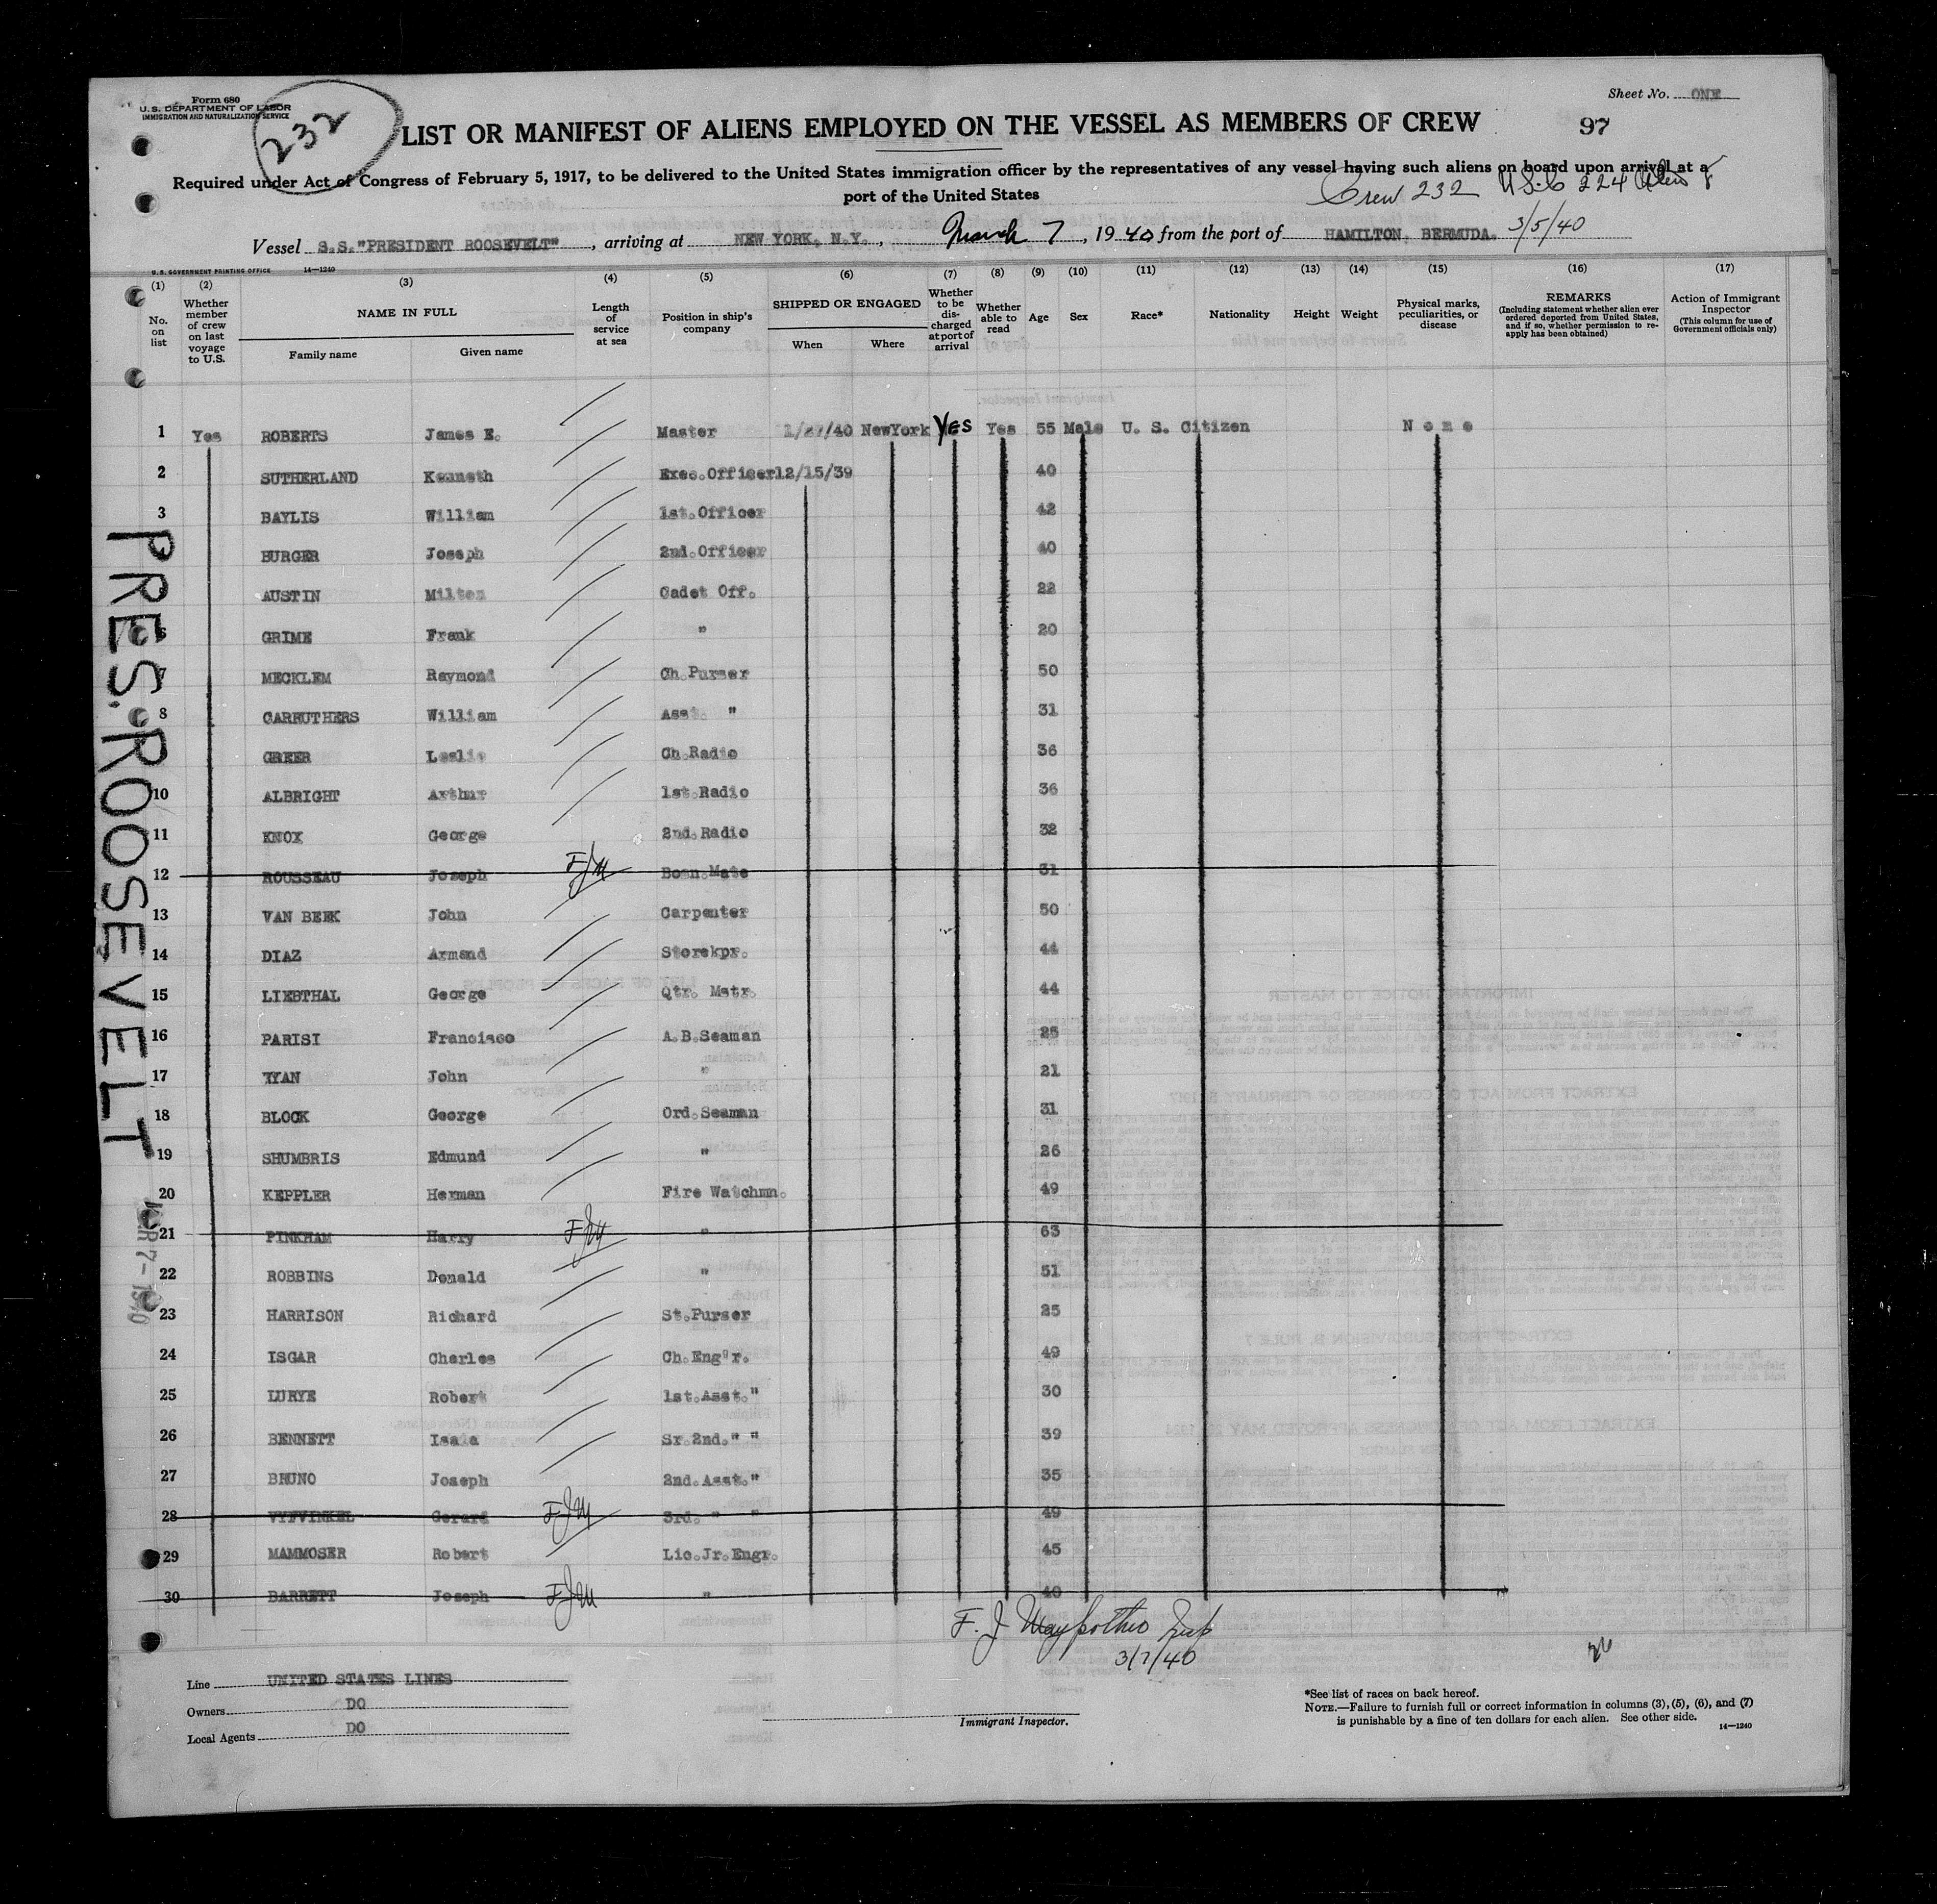 Form 680
U. S. DEPARTMENT OF LABOR
IMMIGRATION AND NATURALIZATION SERVICE
232
Sheet No. ONE
LIST OR MANIFEST OF ALIENS EMPLOYED ON THE VESSEL AS MEMBERS OF CREW
97
Required under Act of Congress of February 5, 1917, to be delivered to the United States immigration officer by the representatives of any vessel having such aliens on board upon arrival at a
port of the United States
Crew 232 USC 224 Alien 8
Vessel S.S."PRESIDENT ROOSEVELT", arriving at NEW YORK, N.Y., March 7, 1940 from the port of HAMILTON, BERMUDA. 3/5/40
U. S. GOVERNMENT PRINTING OFFICE 14—1240
(1) (2) (3) (4) (5) (6) (7) (8) (9) (10) (11) (12) (13) (14) (15) (16) (17)
No. on list
Whether member of crew on last voyage to U.S.
NAME IN FULL
Family name Given name
Length of service at sea
Position in ship's company
SHIPPED OR ENGAGED
When Where
Whether to be discharged at port of arrival
Whether able to read
Age
Sex
Race*
Nationality
Height
Weight
Physical marks, peculiarities, or disease
REMARKS
(Including statement whether alien ever ordered deported from United States, and if so, whether permission to reapply has been obtained)
Action of Immigrant Inspector
(This column for use of Government officials only)
1 Yes ROBERTS James E. Master 1/27/40 NewYork Yes Yes 55 Male U. S. Citizen None
2 SUTHERLAND Kenneth Exec.Officer 12/15/39 40
3 BAYLIS William 1st.Officer 42
BURGER Joseph 2nd.Officer 40
AUSTIN Milton Cadet Off. 22
6 GRIME Frank " 20
7 MECKLEM Raymond Ch.Purser 50
8 CARRUTHERS William Asst. " 31
GREER Leslie Ch.Radio 36
10 ALBRIGHT Arthur 1st.Radio 36
11 KNOX George 2nd.Radio 32
12 ROUSSEAU Joseph FJM Bosn.Mate 31
13 VAN BEEK John Carpenter 50
14 DIAZ Armand Storekpr. 44
15 LIEBTHAL George Qtr. Mstr. 44
16 PARISI Francisco A.B.Seaman 25
17 RYAN John " 21
18 BLOCK George Ord.Seaman 31
19 SHUMBRIS Edmund " 26
20 KEPPLER Herman Fire Watchmn. 49
21 PINKHAM Harry FJM " 63
22 ROBBINS Donald " 51
23 HARRISON Richard St.Purser 25
24 ISGAR Charles Ch.Eng'r. 49
25 LURYE Robert 1st.Asst." 30
26 BENNETT Isaia Sr.2nd." " 39
27 BRUNO Joseph 2nd.Asst." 35
28 VYFVINKEL Gerard FJM 3rd. " " 49
29 MAMMOSER Robert Lic.Jr.Engr. 45
30 BARRETT Joseph FJM " 40
PRES. ROOSEVELT
MAR 7 - 1940
F. J.
3/7/40
26
Line UNITED STATES LINES
Owners DO
Local Agents DO
Immigrant Inspector.
*See list of races on back hereof.
NOTE.—Failure to furnish full or correct information in columns (3), (5), (6), and (7)
is punishable by a fine of ten dollars for each alien. See other side.
14—1240